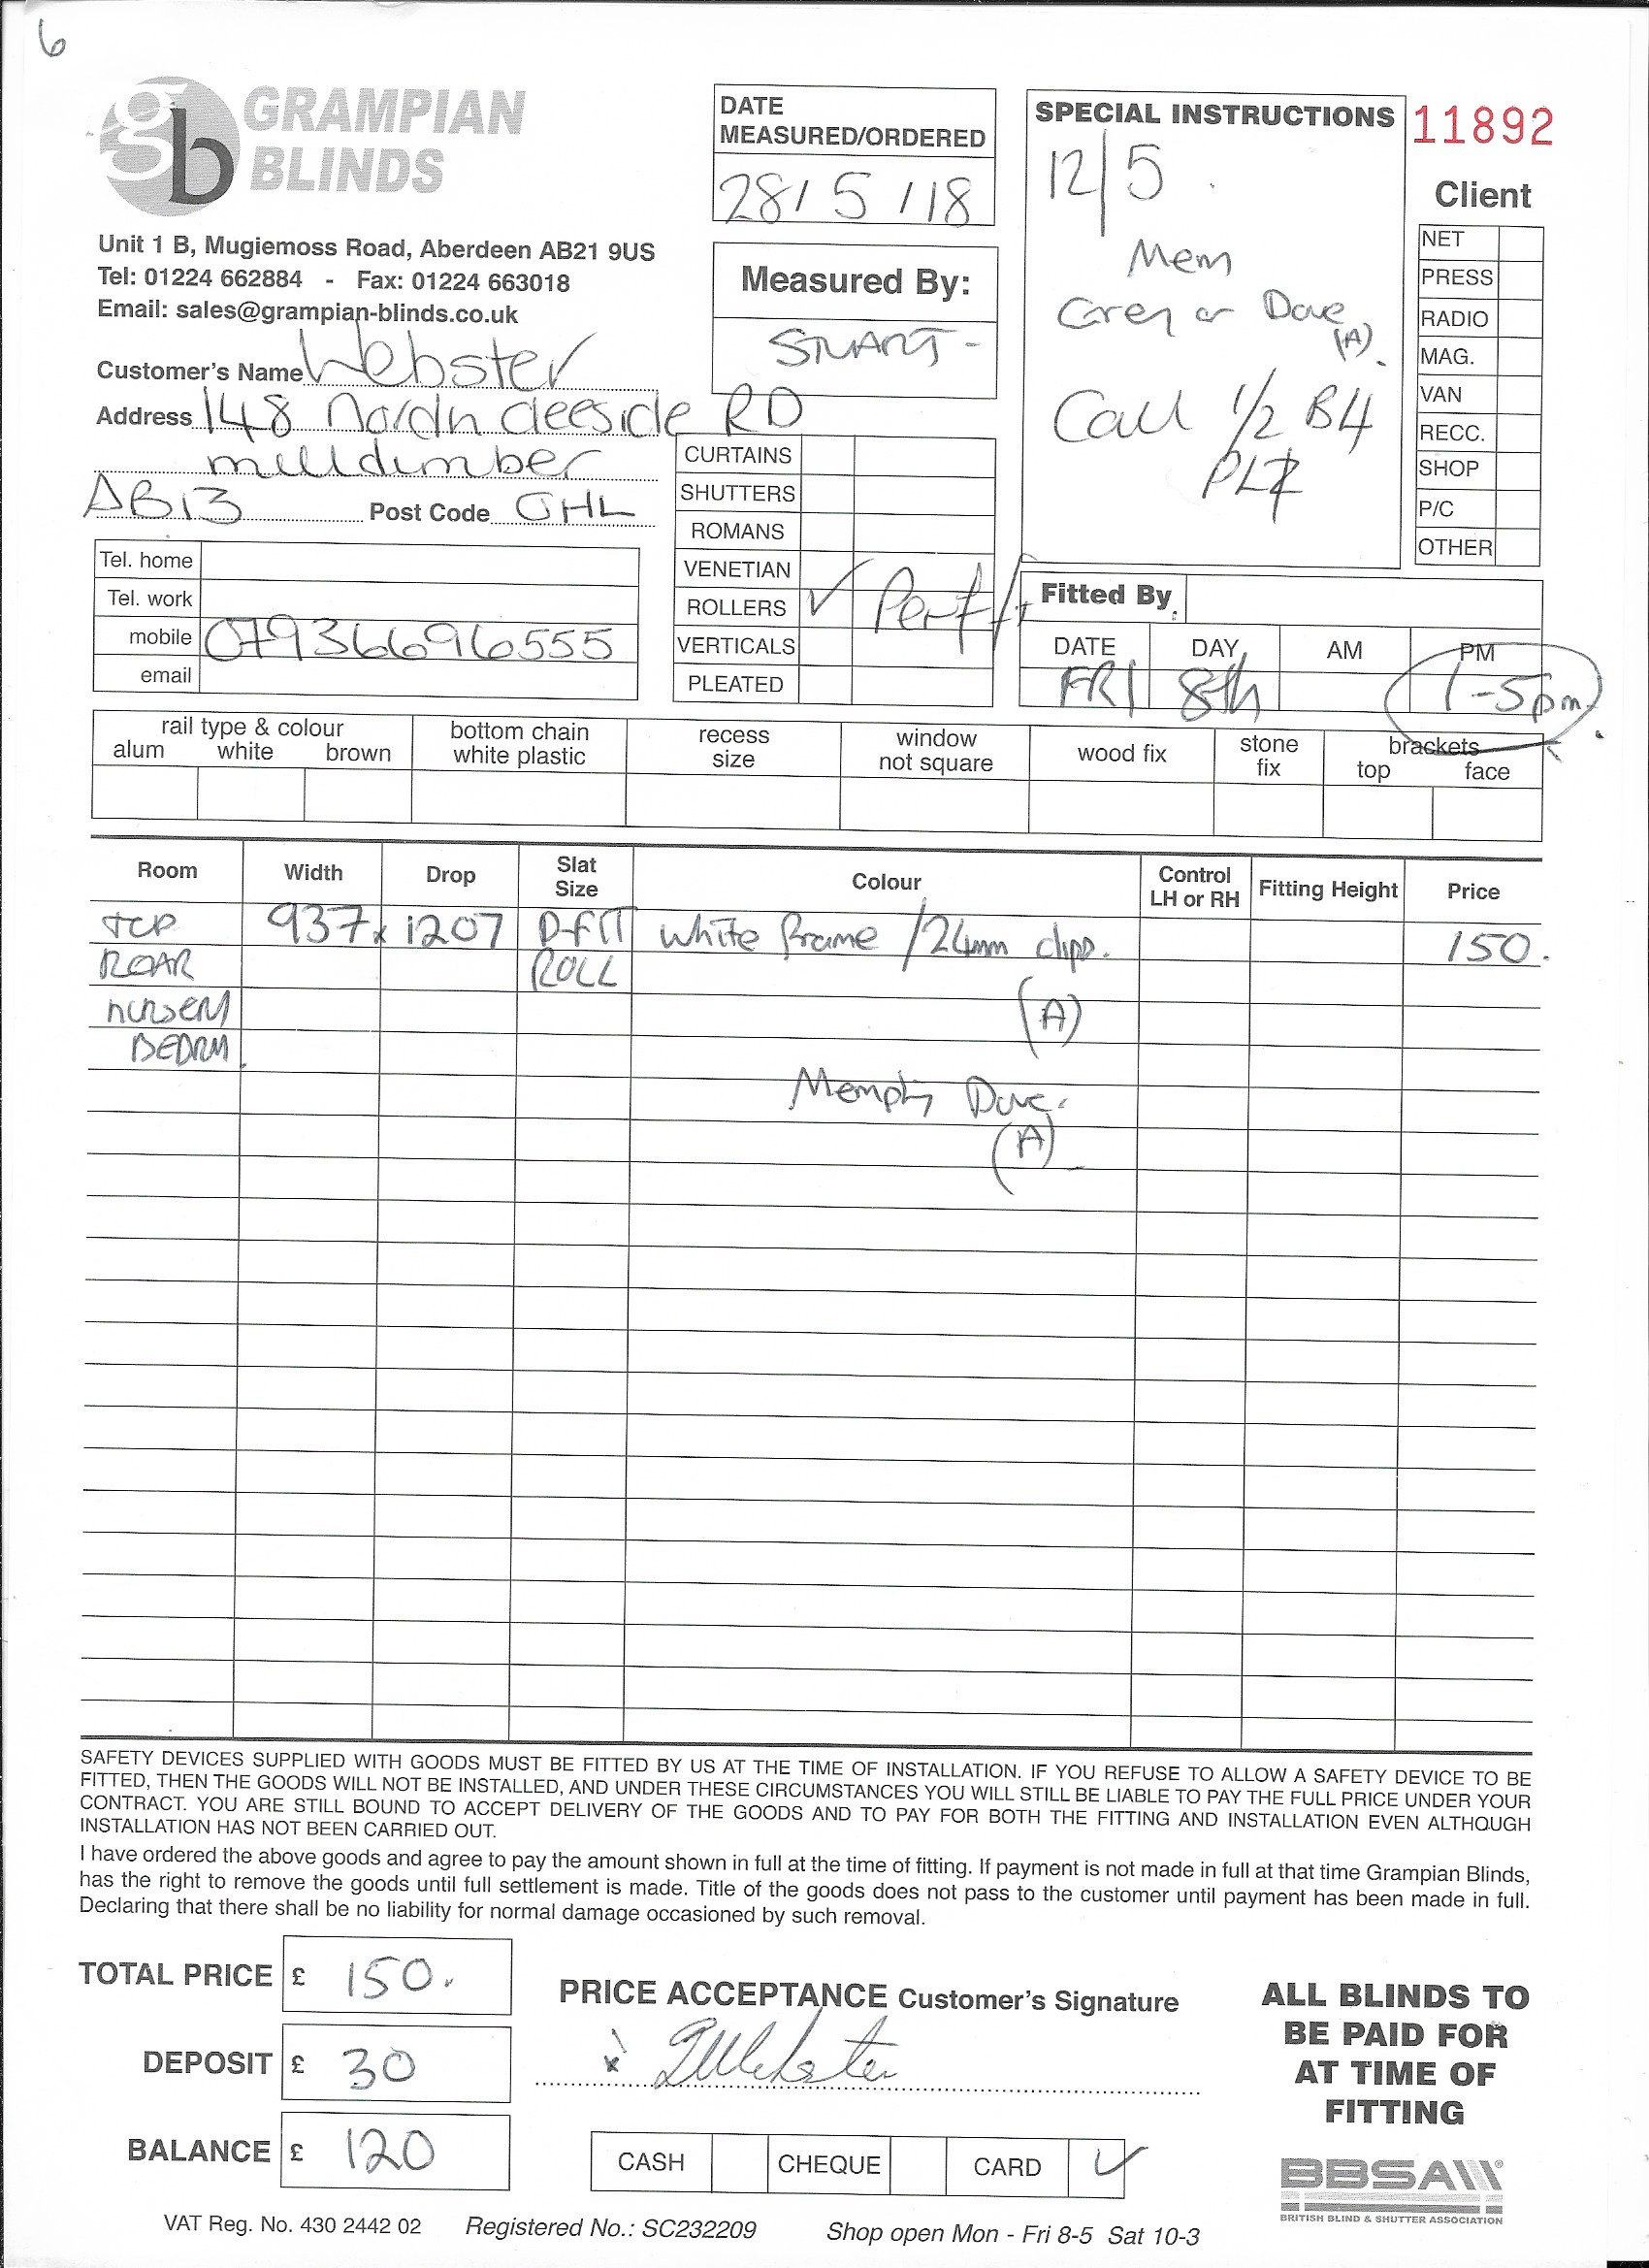 6
gb GRAMPIAN
BLINDS
Unit 1 B, Mugiemoss Road, Aberdeen AB21 9US
Tel: 01224 662884 - Fax: 01224 663018
Email: sales@grampian-blinds.co.uk
Customer's Name Webster
Address 148 North deeside RD
milldimber
AB13 Post Code OHL
Tel. home
Tel. work
mobile 07936696555
email
DATE
MEASURED/ORDERED
28/5/18
Measured By:
STUART-
CURTAINS
SHUTTERS
ROMANS
VENETIAN
ROLLERS ✓ Perfit
VERTICALS
PLEATED
SPECIAL INSTRUCTIONS
12/5.
Mem
Grey or Dove
(A).
Call 1/2 B4
PLZ
11892
Client
NET
PRESS
RADIO
MAG.
VAN
RECC.
SHOP
P/C
OTHER
Fitted By
DATE DAY AM PM
FRI 8th 1-5pm.
rail type & colour
alum white brown
bottom chain
white plastic
recess
size
window
not square
wood fix
stone
fix
brackets
top face
Room Width Drop Slat Size Colour Control LH or RH Fitting Height Price
TOP 937 x 1207 P-FIT White frame /24mm clips. 150.
REAR ROLL
nursery (A)
BEDRM
Memphis Dove.
(A)
SAFETY DEVICES SUPPLIED WITH GOODS MUST BE FITTED BY US AT THE TIME OF INSTALLATION. IF YOU REFUSE TO ALLOW A SAFETY DEVICE TO BE
FITTED, THEN THE GOODS WILL NOT BE INSTALLED, AND UNDER THESE CIRCUMSTANCES YOU WILL STILL BE LIABLE TO PAY THE FULL PRICE UNDER YOUR
CONTRACT. YOU ARE STILL BOUND TO ACCEPT DELIVERY OF THE GOODS AND TO PAY FOR BOTH THE FITTING AND INSTALLATION EVEN ALTHOUGH
INSTALLATION HAS NOT BEEN CARRIED OUT.
I have ordered the above goods and agree to pay the amount shown in full at the time of fitting. If payment is not made in full at that time Grampian Blinds,
has the right to remove the goods until full settlement is made. Title of the goods does not pass to the customer until payment has been made in full.
Declaring that there shall be no liability for normal damage occasioned by such removal.
TOTAL PRICE £ 150.
DEPOSIT £ 30
BALANCE £ 120
PRICE ACCEPTANCE Customer's Signature
x Webster
CASH CHEQUE CARD ✓
ALL BLINDS TO
BE PAID FOR
AT TIME OF
FITTING
BBSA
BRITISH BLIND & SHUTTER ASSOCIATION
VAT Reg. No. 430 2442 02 Registered No.: SC232209 Shop open Mon - Fri 8-5 Sat 10-3